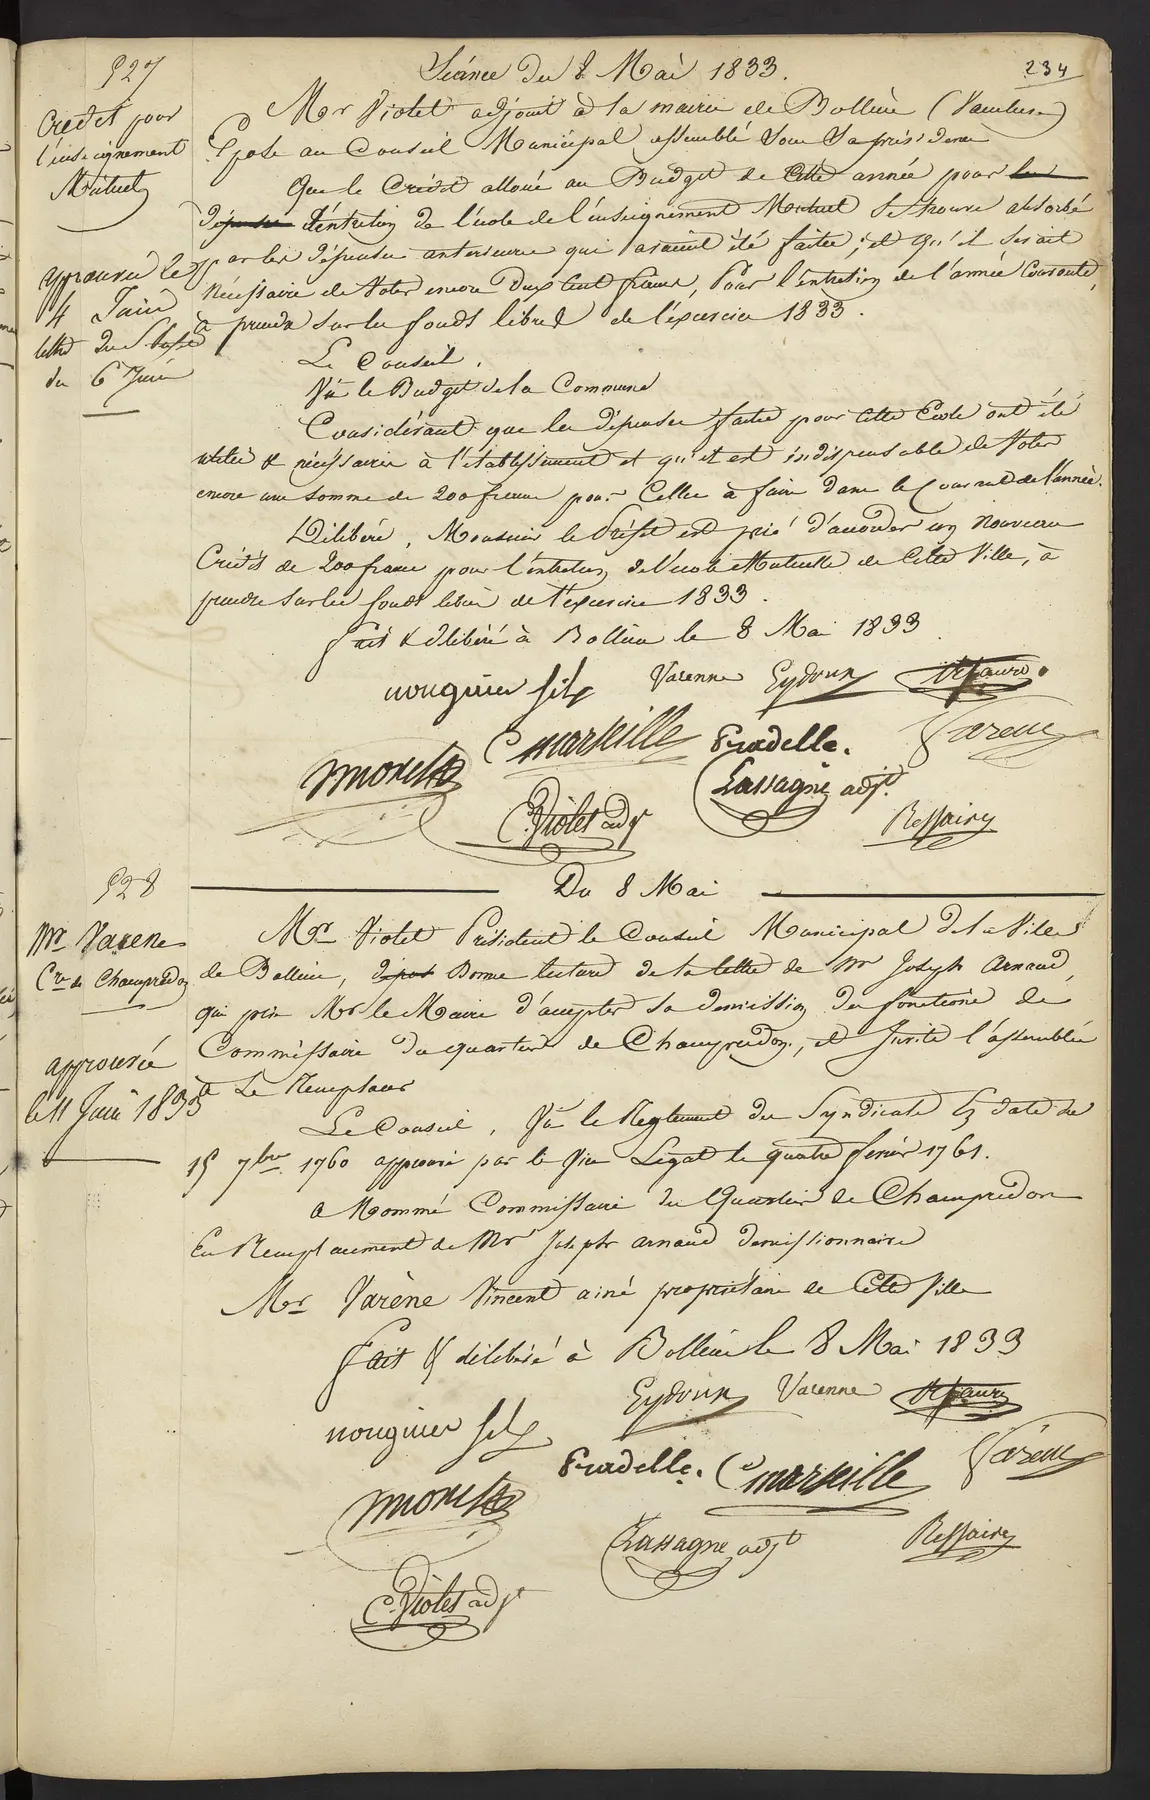 234
527
Séance du 8 Mai 1833.
Crédit pour
l'enseignement
Mutuel
approuvé le
4 Juin
lettre du
du 6 Juin
Mr Violet adjoint à la mairie de Bollène (Vaucluse)
Expose au Conseil Municipal assemblé sous sa présidence
Que le Crédit alloué au Budget de Cette année pour les
dépenses d'entretien de l'école de l'enseignement Mutuel se trouve absorbé
par les dépenses anterieures qui avaient été faites; et qu'il serait
nécessaire de voter encore deux cent francs, Pour l'entretien de l'année Courante,
à prendre sur les fonds libres de l'éxercice 1833.
Le Conseil,
Vu le Budget de la Commune
Considérant que les dépenses faites pour cette Ecole ont été
utiles & nécéssaires à l'établissement et qu'il est indispensable de voter
encore une somme de 200 francs pour Celles à faire dans le Courant de l'année.
Délibéré, Monsieur le Préfet est prié d'accorder un nouveau
Crédit de 200 francs pour l'entretien de l'école Mutuelle de Cette Ville, à
prendre sur les fonds libres de l'exercice 1833.
fait & délibéré à Bollène le 8 Mai 1833
nouguier fils Varenne Eydoux Defaure
C marseille Pradelle. Varene
Lassagne adjt.
C. Violet adjt Ressairy
528
Du 8 Mai
Mr Varene
Cre de Champredon
approuvée
le 11 Juin 1833
Mr Violet Président le Conseil Municipal de la Ville
de Bollène, Donne lecture de la lettre de Mr Joseph Arnaud,
qui prie Mr le Maire d'accepter sa demission des fonctions de
Commissaire du quartier de Champredon, et Invite l'assemblée
à Le Remplacer
Le Conseil, Vu le Reglement du Syndicat En date du
15 7bre 1760 approuvé par le Vice Legat le quatre fevrier 1761.
A Nommé Commissaire du Quartier de Champredon
En Remplacement de Mr Joseph arnaud demissionnaire
Mr Varène Vincent ainé propriétaire de Cette Ville
fait & délibéré à Bollène le 8 Mai 1833
Eydoux Varenne Defaure
nouguier fils
Pradelle. C marseille Varene
Lassagne adjt Ressairy
C. Violet adjt